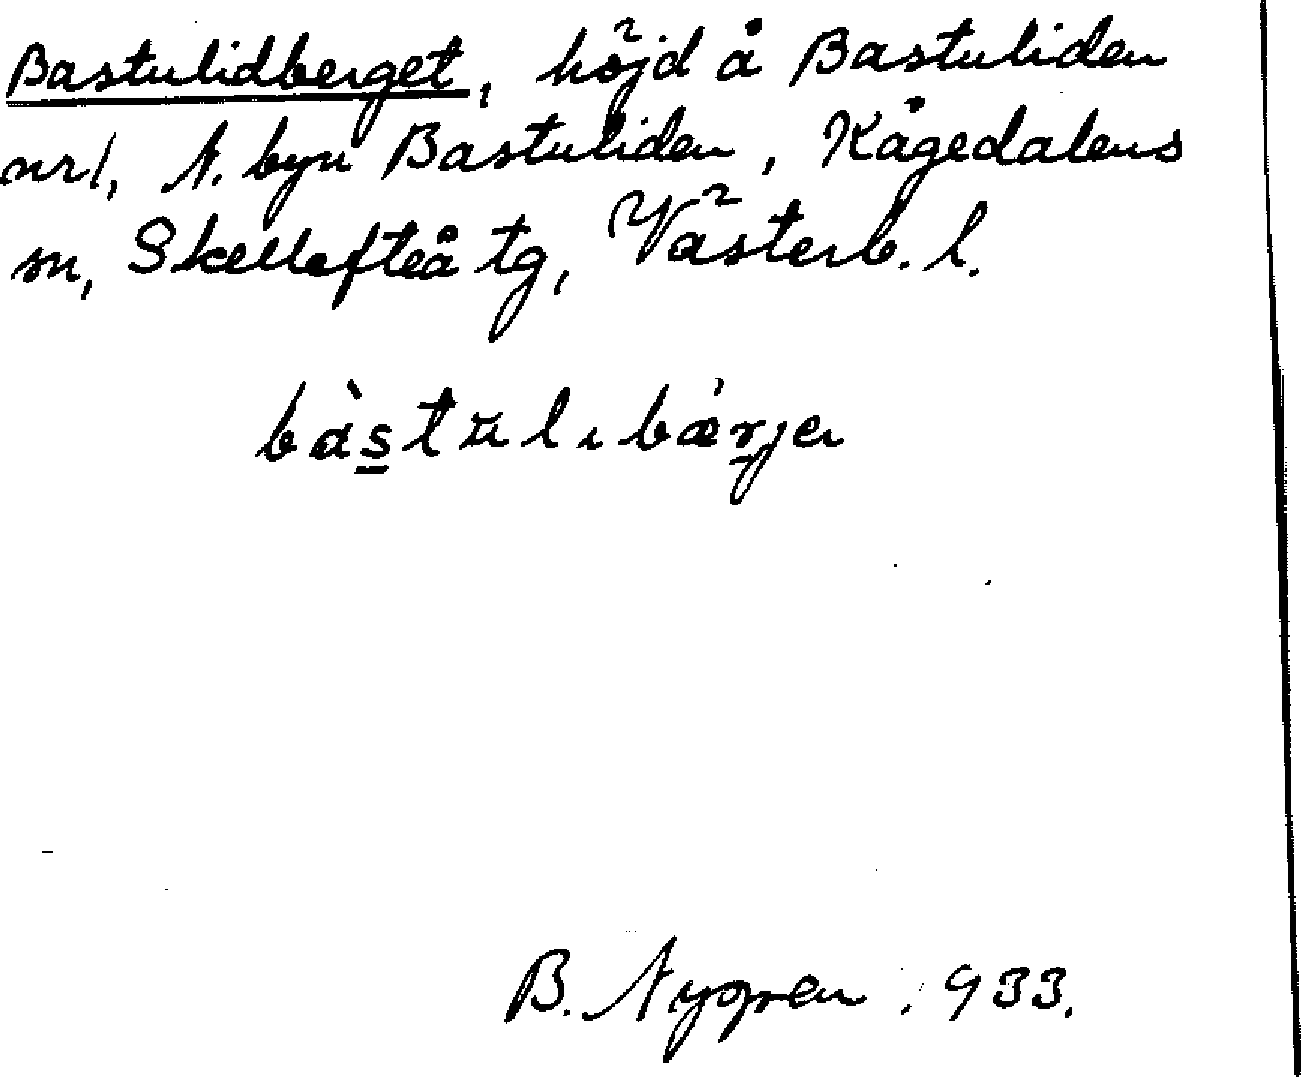 Bastulidberget, höjd å Bastuliden
nr 1, N. byn Bastuliden, Kågedalens
sn, Skellefteå tg, Västerb. l.
bàs̲tŭlıbǽrjeɩ
B. Nygren. 933.